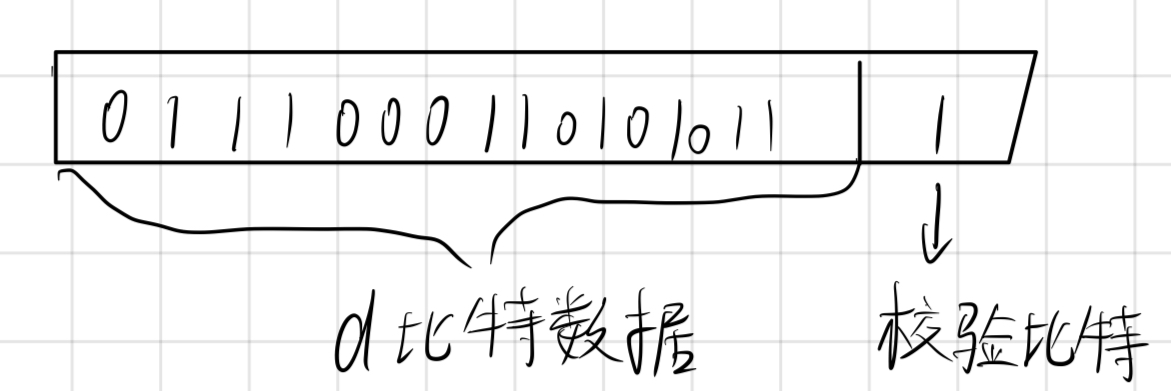 0111000110101011 1
d比特数据 校验比特